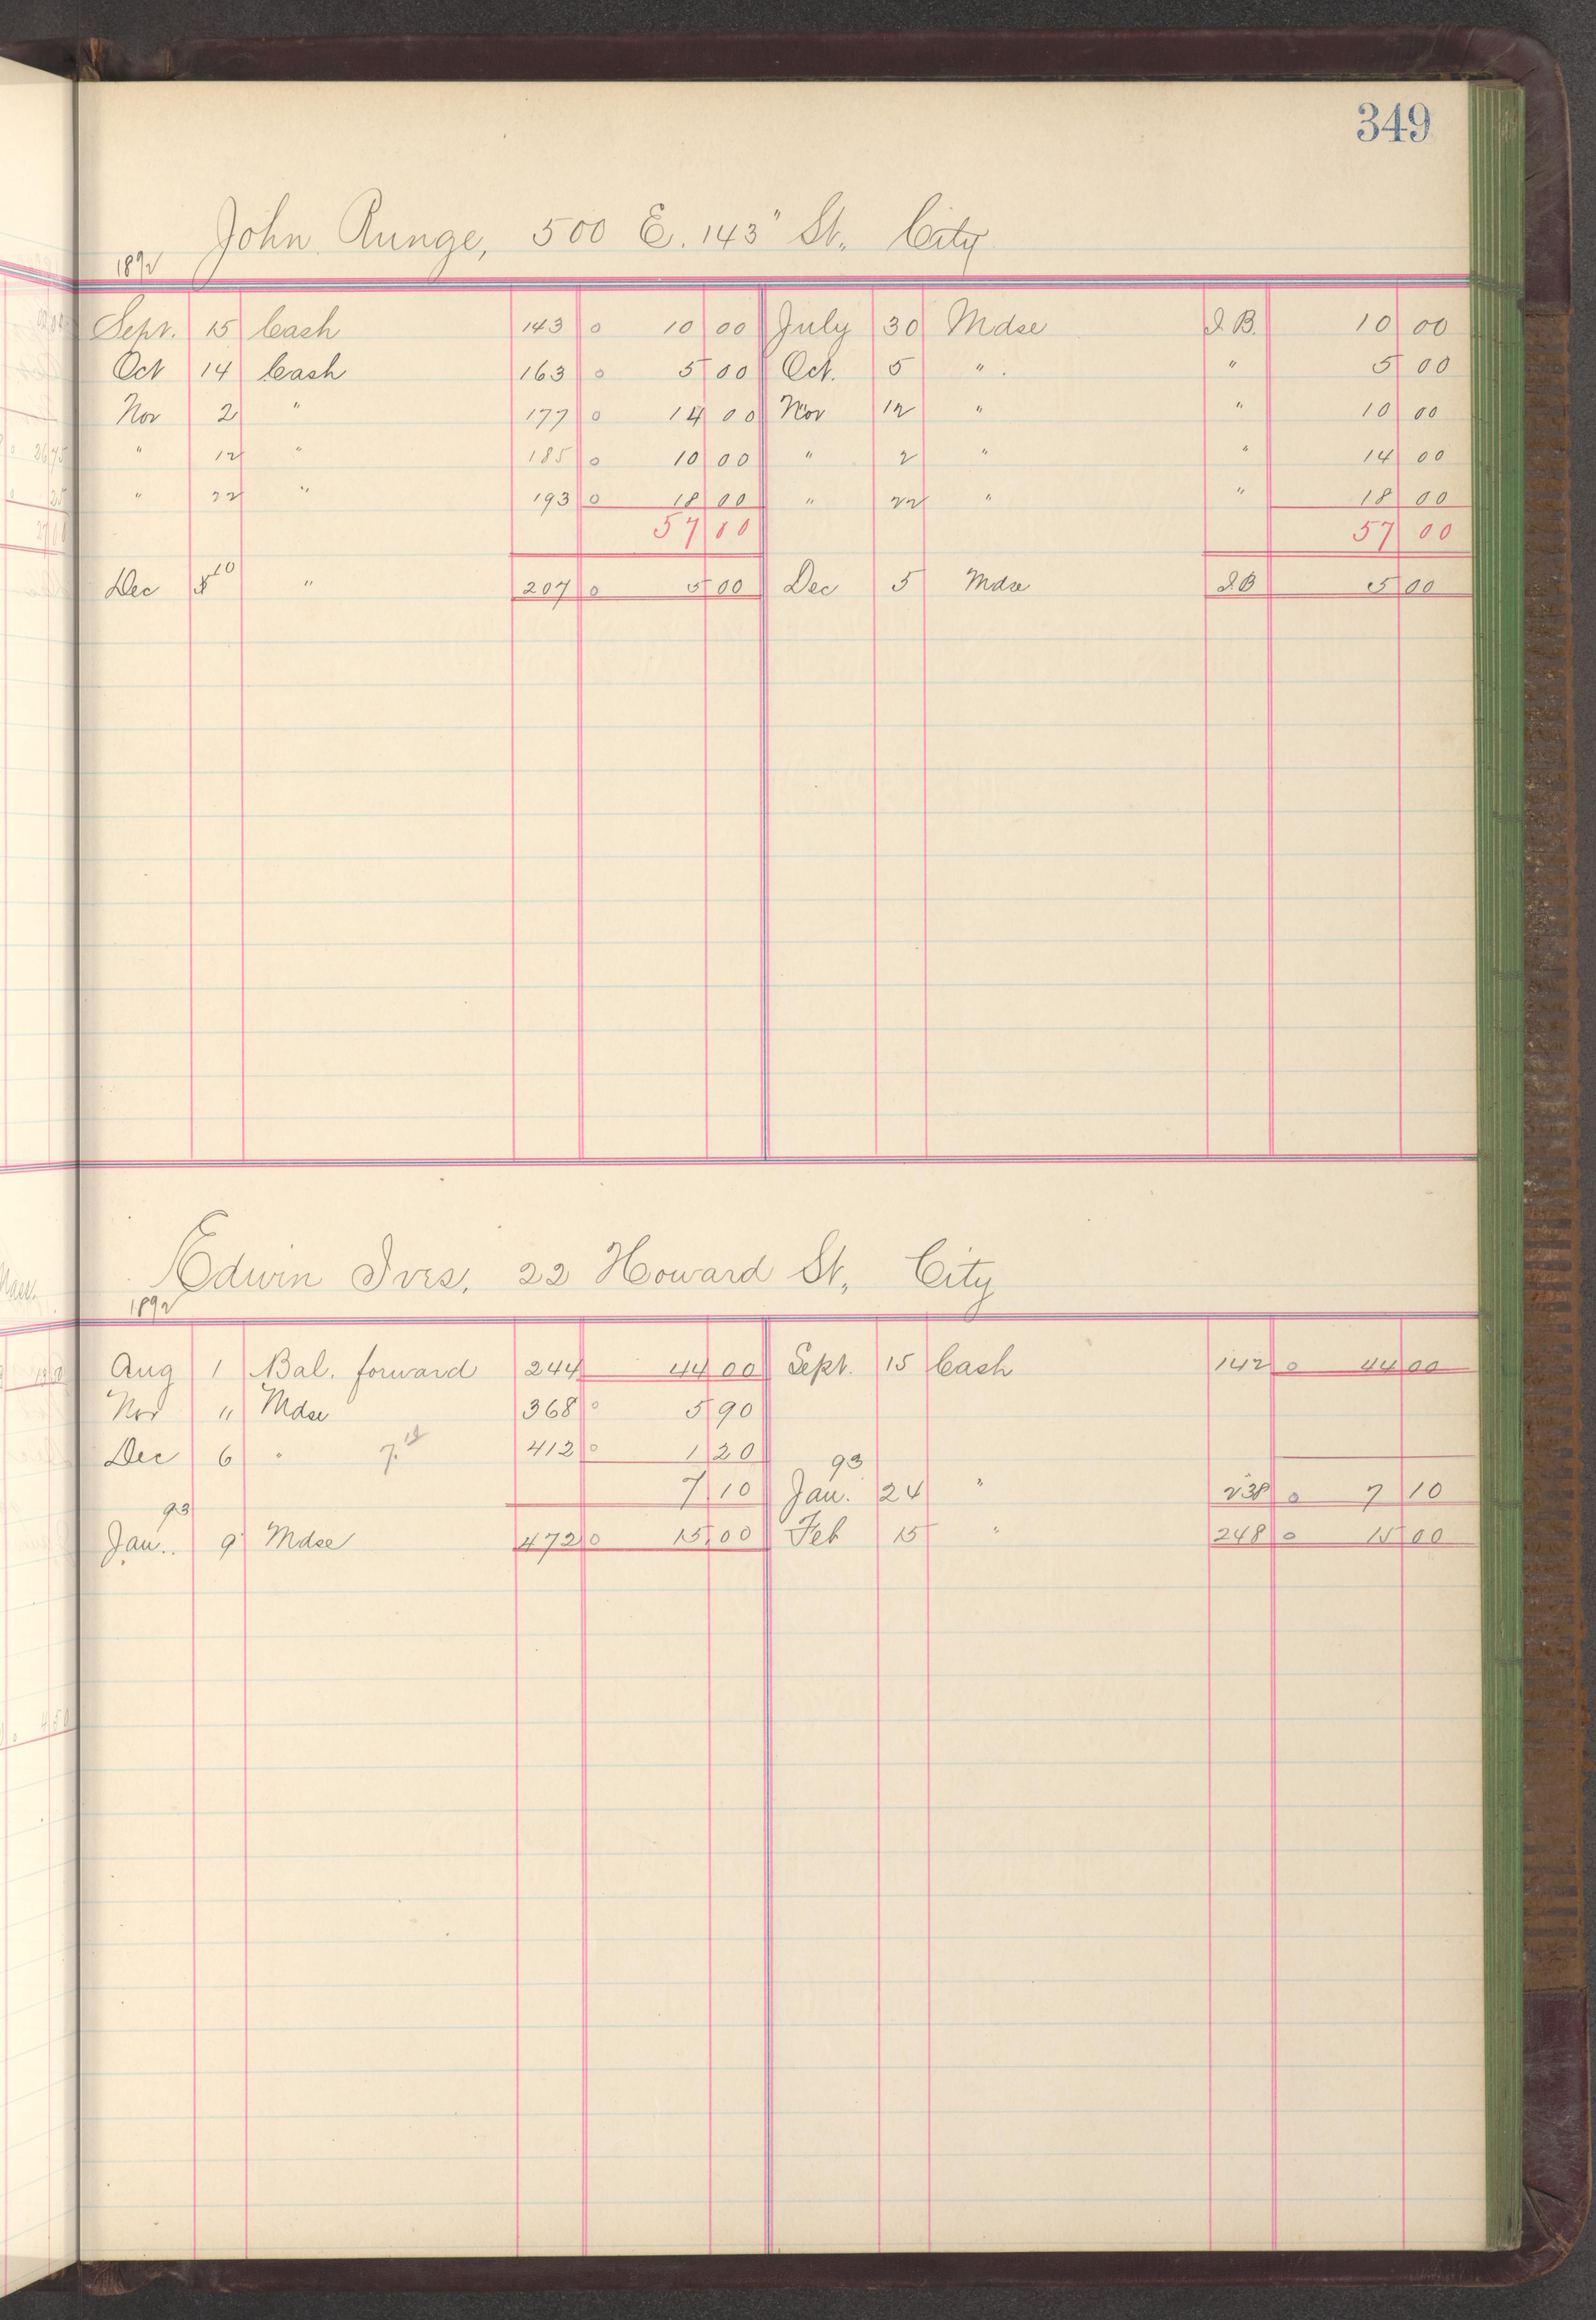 349
John Runge, 500 E. 143" St., City
1892
Sept. 15 Cash 143 o 10 00 July 30 Mdse I.B. 10 00
Oct 14 Cash 163 o 5 00 Oct. 5 " " 5 00
Nov 2 " 177 o 14 00 Nov 12 " " 10 00
" 12 " 185 o 10 00 " 2 " " 14 00
" 22 " 193 o 18 00 " 22 " " 18 00
57 00 57 00
Dec 10 " 207 o 5 00 Dec 5 Mdse I.B 5 00
Edwin Ives, 22 Howard St., City
1892
Aug 1 Bal. forward 244 44 00 Sept. 15 Cash 142 o 44 00
Nov " Mdse 368 o 5 90
Dec 6 " 412 o 1 20
7 10 93 Jan. 24 " 238 o 7 10
93
Jan. 9 Mdse 472 o 15 00 Feb 15 " 248 o 15 00